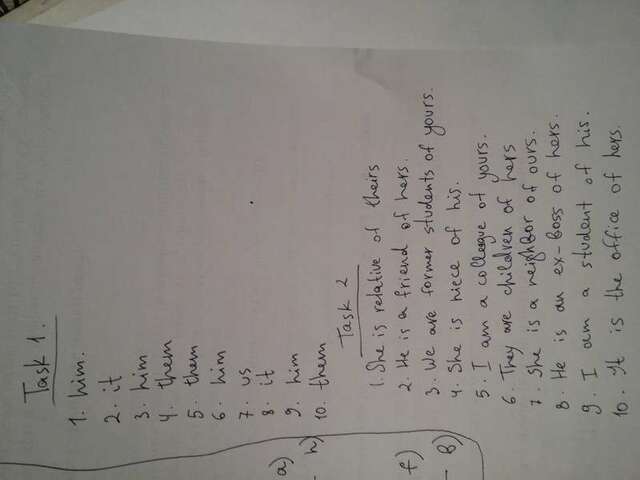 Task 1.
1. him.
2. it
3. him
4. them
5. them
6. him
7. us
8. it
9. him
10. them
a)
- h)
f)
- B)
Task 2
1. She is relative of theirs
2. He is a friend of hers.
3. We are former students of yours.
4. She is niece of his.
5. I am a collegue of yours.
6. They are children of hers
7. She is a neighbor of ours.
8. He is an ex-boss of hers.
9. I am a student of his.
10. It is the office of hers.